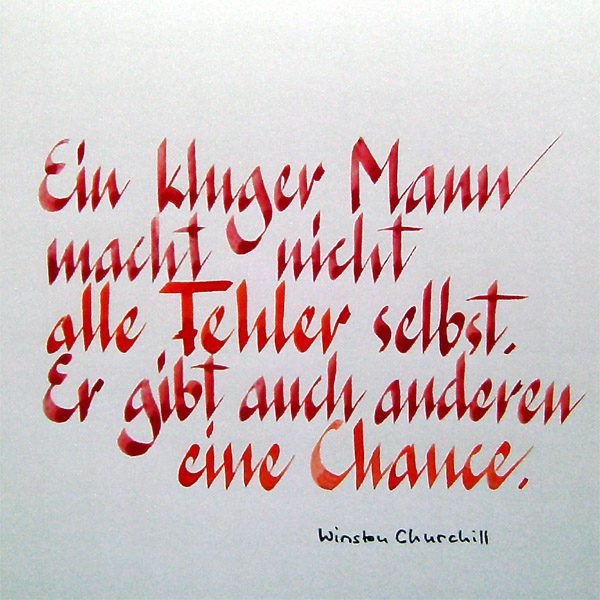 Ein kluger Mann
macht nicht
alle Fehler selbst.
Er gibt auch anderen
eine Chance.
Winston Churchill